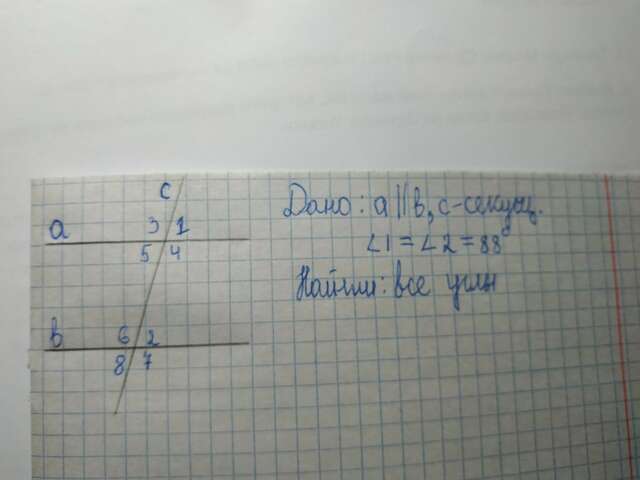 c
a 3 1
5 4
b 6 2
8 7
Дано: a||b, c-секущ.
∠1=∠2=88°
Найти: все углы